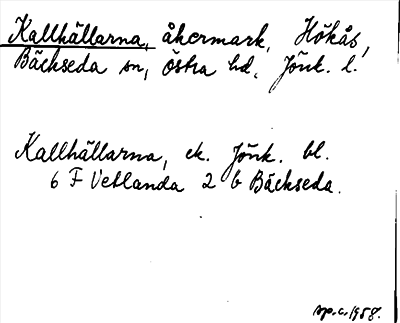 Kallhällarna, åkermark, Hökås,
Bäckseda sn, östra hd, Jönk. l.
Kallhällarna, ek. Jönk. bl.
6 F Vetlanda 2 b Bäckseda.
sp.c. 1958.